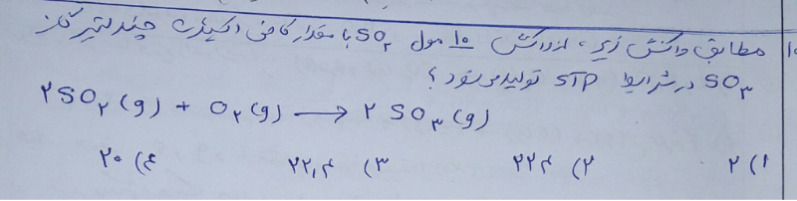 ۱۰ مطابق واکنش زیر، از واکنش ۱۰ مول SO₂ با مقدار کافی اکسیژن چند لیتر گاز
SO₃ در شرایط STP تولید می شود؟
۲SO₂(g) + O₂(g) → ۲SO₃(g)
۱) ۲ ۲) ۲۲۴ ۳) ۲۲,۴ ۴) ۲۰